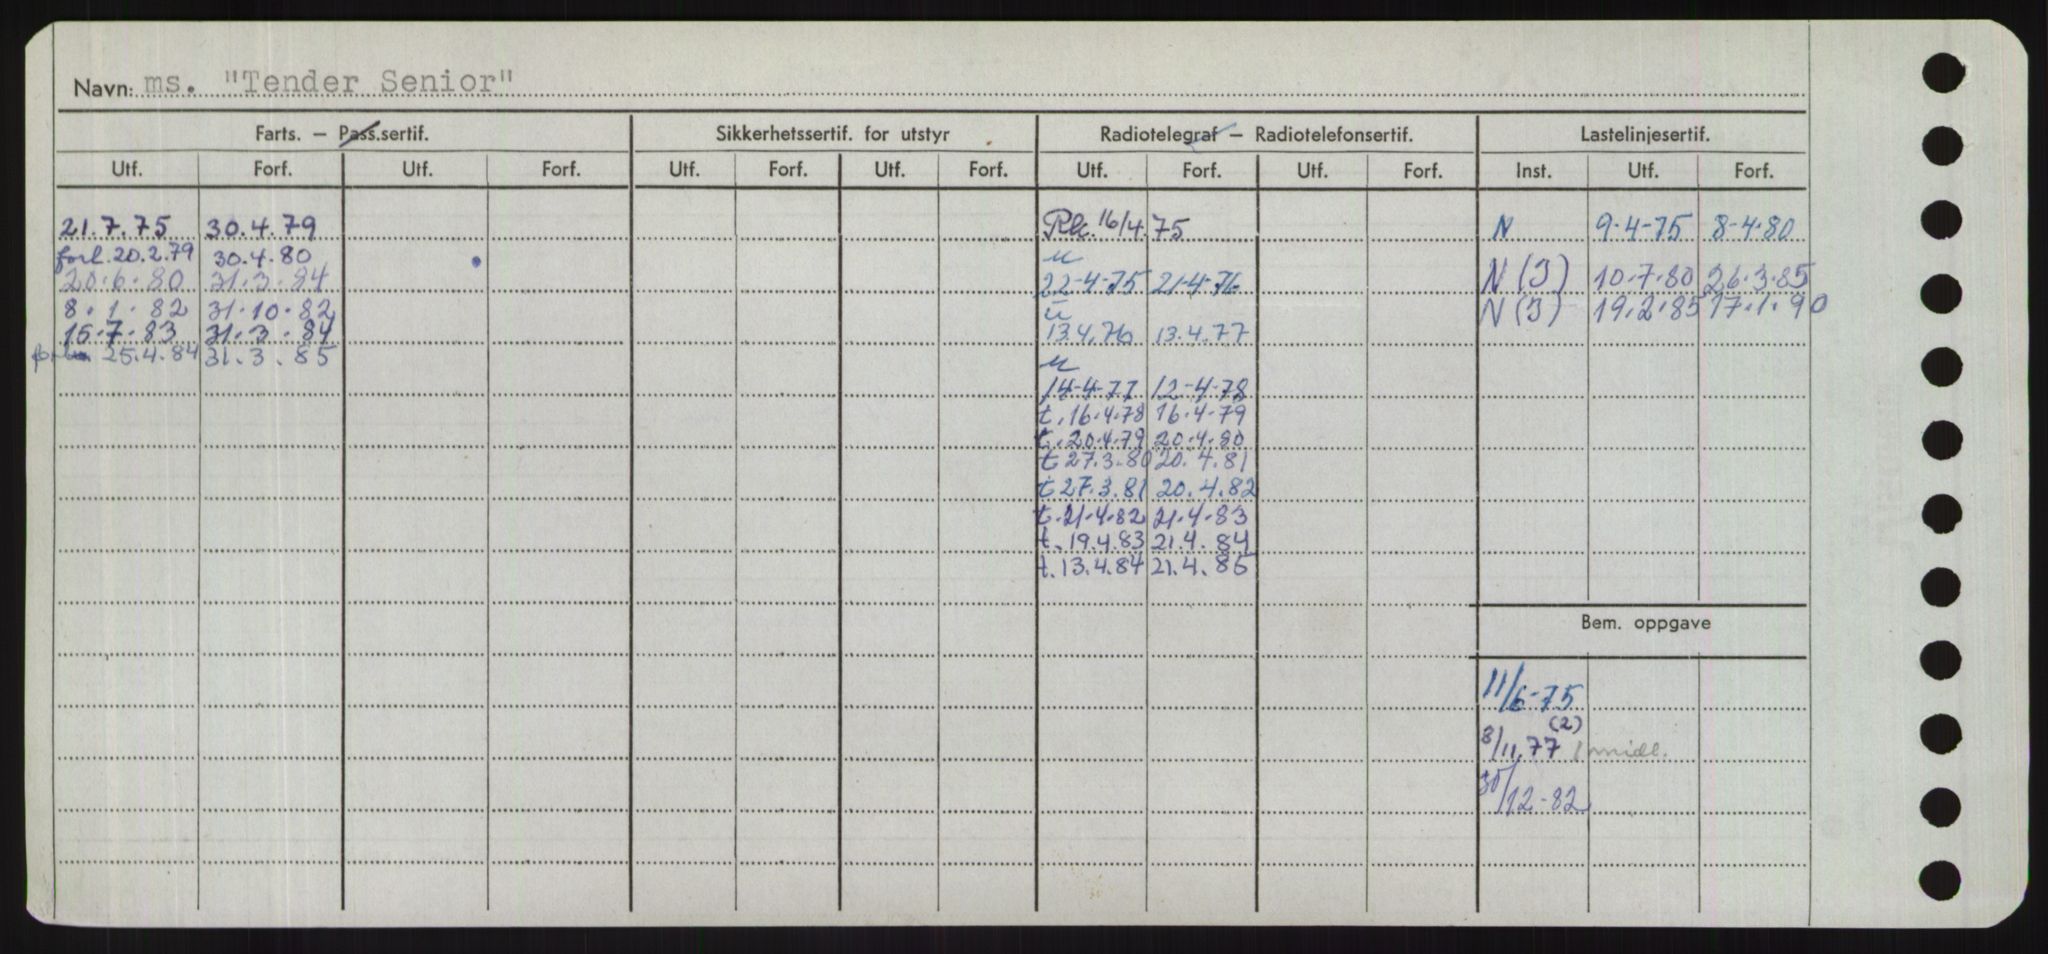 Navn: ms. "Tender Senior"
Farts. — Pass.sertif. Sikkerhetssertif. for utstyr Radiotelegraf — Radiotelefonsertif. Lastelinjesertif.
Utf. Forf. Utf. Forf. Utf. Forf. Utf. Forf. Utf. Forf. Utf. Forf. Inst. Utf. Forf.
21.7.75 30.4.79 16/4.75 N 9-4-75 8-4-80
forl. 20.2.79 30.4.80 u
20.6.80 31.3.84 22-4-75 21-4-76 N (I) 10.7.80 26.3.85
8.1.82 31.10.82 u N (I) 19.2.85 17.1.90
15.7.83 31.3.84 13.4.76 13.4.77
25.4.84 31.3.85 u
14-4-77 12-4-78
t. 16.4.78 16.4.79
t. 20.4.79 20.4.80
t 27.3.80 20.4.81
t 27.3.81 20.4.82
t. 21.4.82 21.4.83
t. 19.4.83 21.4.84
t. 13.4.84 21.4.85
Bem. oppgave
11/6-75
8/11.77 (2) midl.
30/12-82